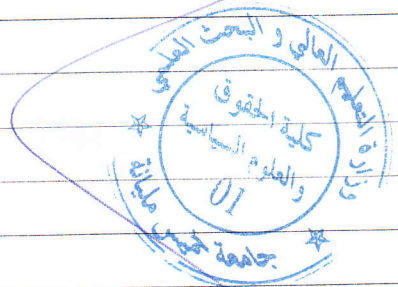 وزارة التعليم العالي و البحث العلمي
كلية الحقوق
والعلوم السياسية
01
جامعة خميس مليانة